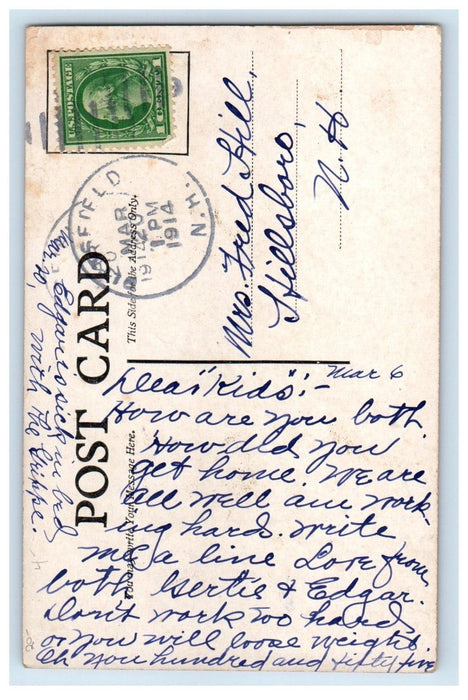 U.S. POSTAGE
1 CENT 1
FFIELD
20
MAR
1 PM
1914
N.H.
POST CARD
This Side for the Address Only.
You may Write Your Message Here.
Mrs. Fred Hill,
Hillsboro,
N.H.
Mar 6
Dear "Kids":-
How are you both.
How did you
get home. We are
all well am work-
ing hard. Write
me a line Love from
both Gertie & Edgar.
Don't work too hard
or you will loose weight.
Eh you hundred and fifty five
Mar 10, Edgar is sick in bed
with the Grippe.